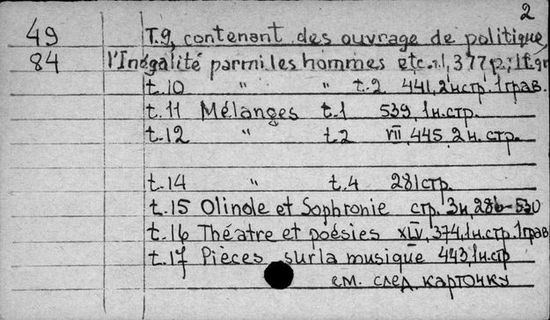 2
49 T.9, contenant des ouvrage de politique,
84 l'Inégalité parmi les hommes etc. t.1, 377 p.; 1 f. gr
t.10 " " t.2 441, 2 н стр. 1 грав.
t.11 Mélanges t.1 539, 1 н. стр.
t.12 " t.2 VII, 445. 2 н. стр.
t.14 " t.4 281 стр.
t.15 Olinole et Sophronie стр. 3 н, 286-530
t.16 Théatre et poésies XLV, 374, 1 н. стр. 1 грав
t.17 Pièces sur la musique 443, 1 н. стр
см. след. карточку